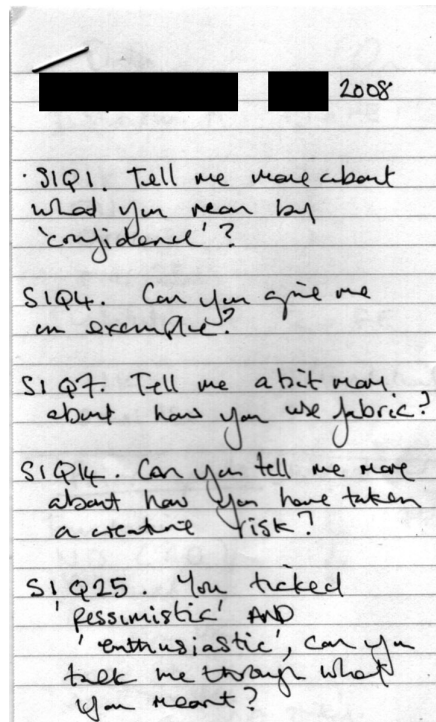 2008
· S1Q1. Tell me more about
what you mean by
'confidence'?
S1Q4. Can you give me
an example?
S1Q7. Tell me a bit more
about how you use fabric?
S1Q14. Can you tell me more
about how you have taken
a creative risk?
S1Q25. You ticked
'pessimistic' AND
'enthusiastic', can you
talk me through what
you meant?